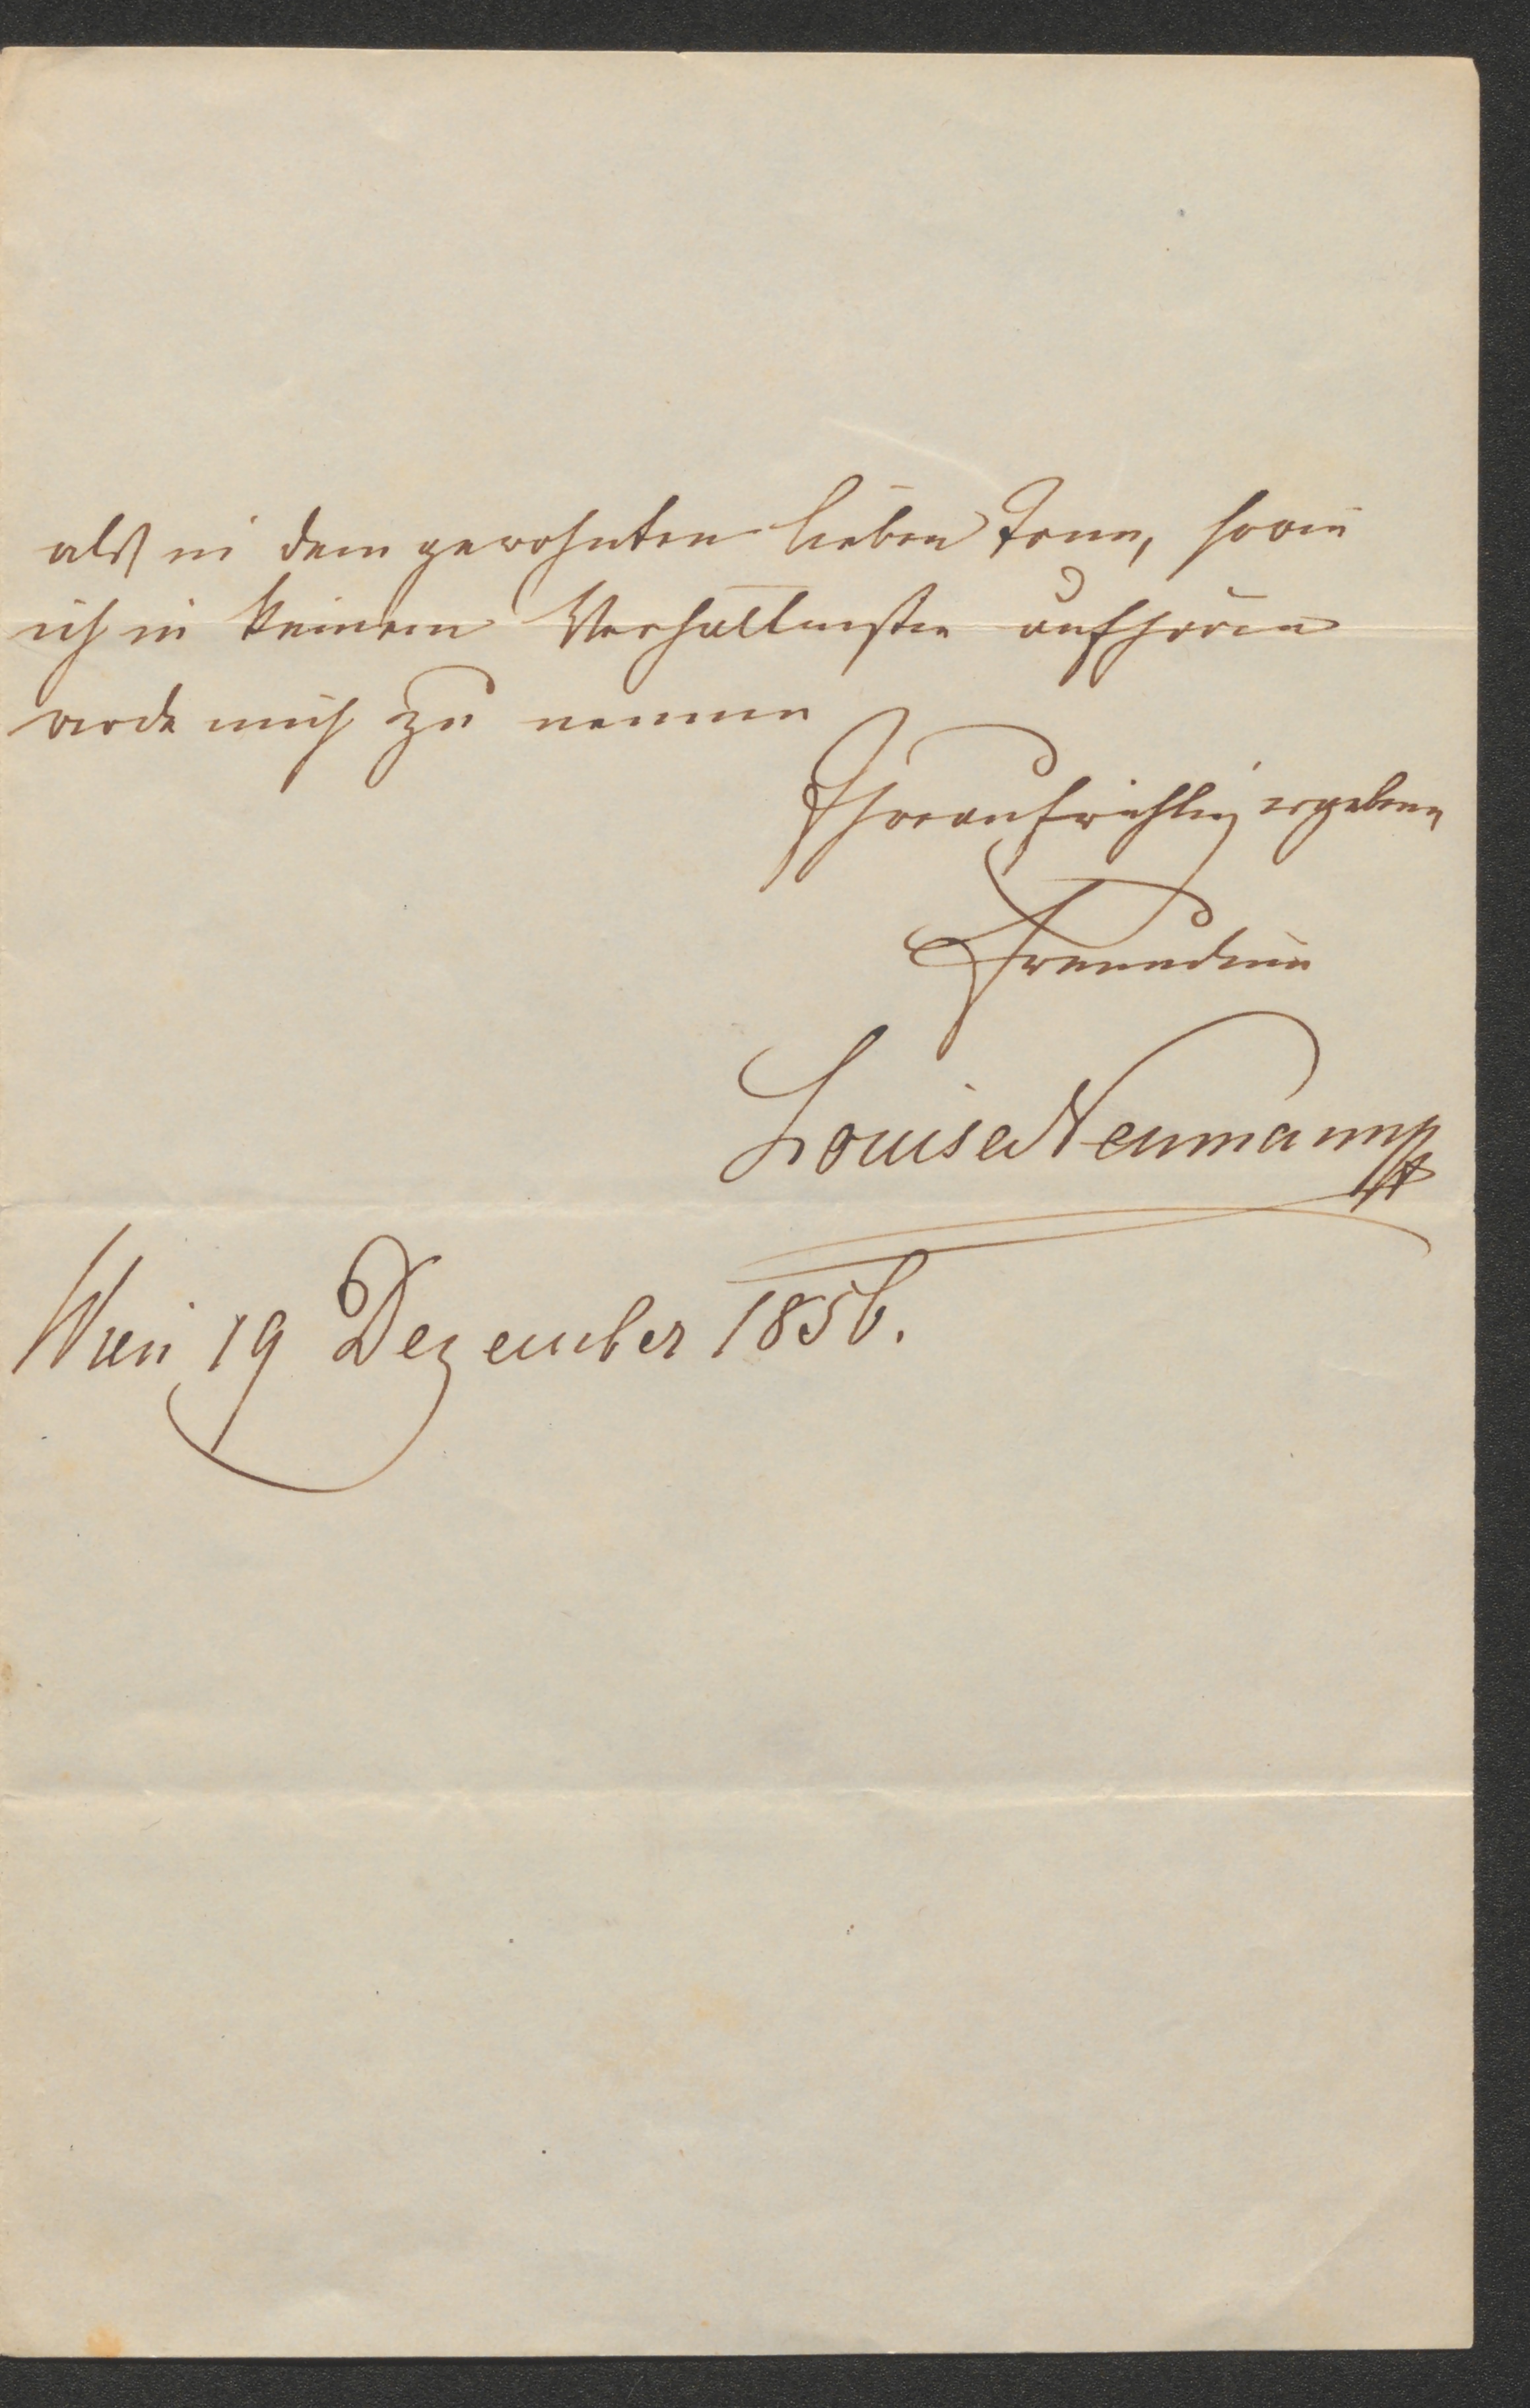 als in dem gewohnten lieben Tone, sowie
ich in keinem Verhältnisse aufhören
werde mich zu nennen
Ihre aufrichtig ergebene
Freundin
Louise Neumann
Wien 19 Dezember 1856.